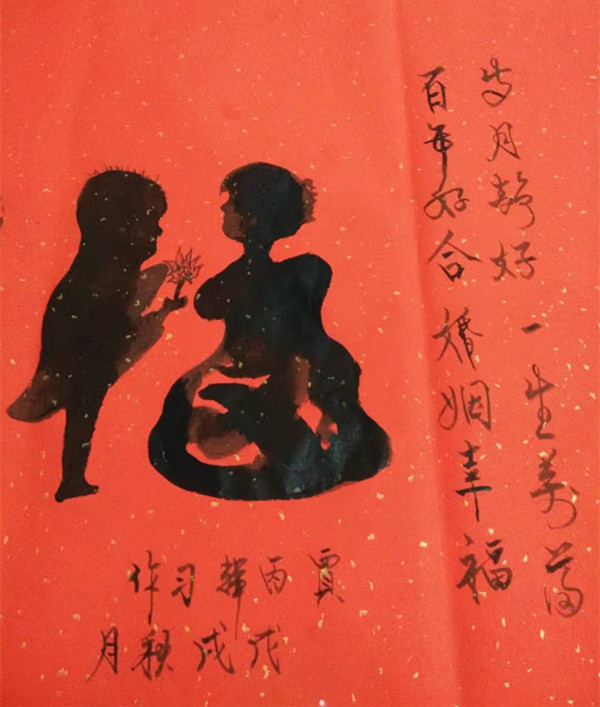 岁月静好 一生美满
百年好合 婚姻幸福
賈丙习作
戊戌秋月